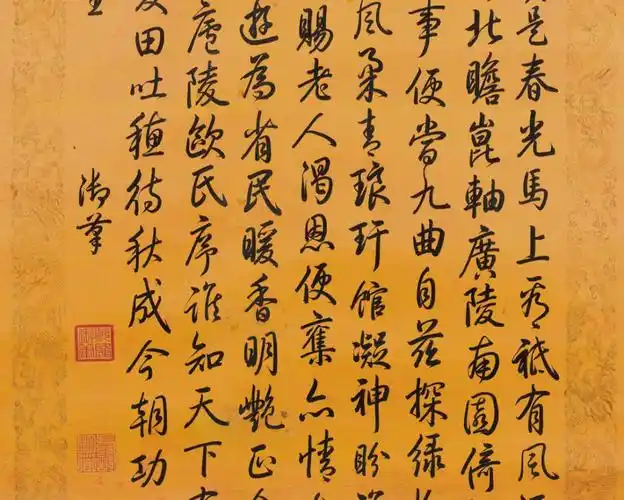 是春光馬上看祗有風
北瞻崑軸廣陵南園倚
事便當九曲自茲探緑
風柔青琅玕館凝神盼
賜老人渴恩便舊亦情
遊為省民暖香明艷正
廬陵歐氏序誰知天下
田吐穗待秋成今朝功
御筆